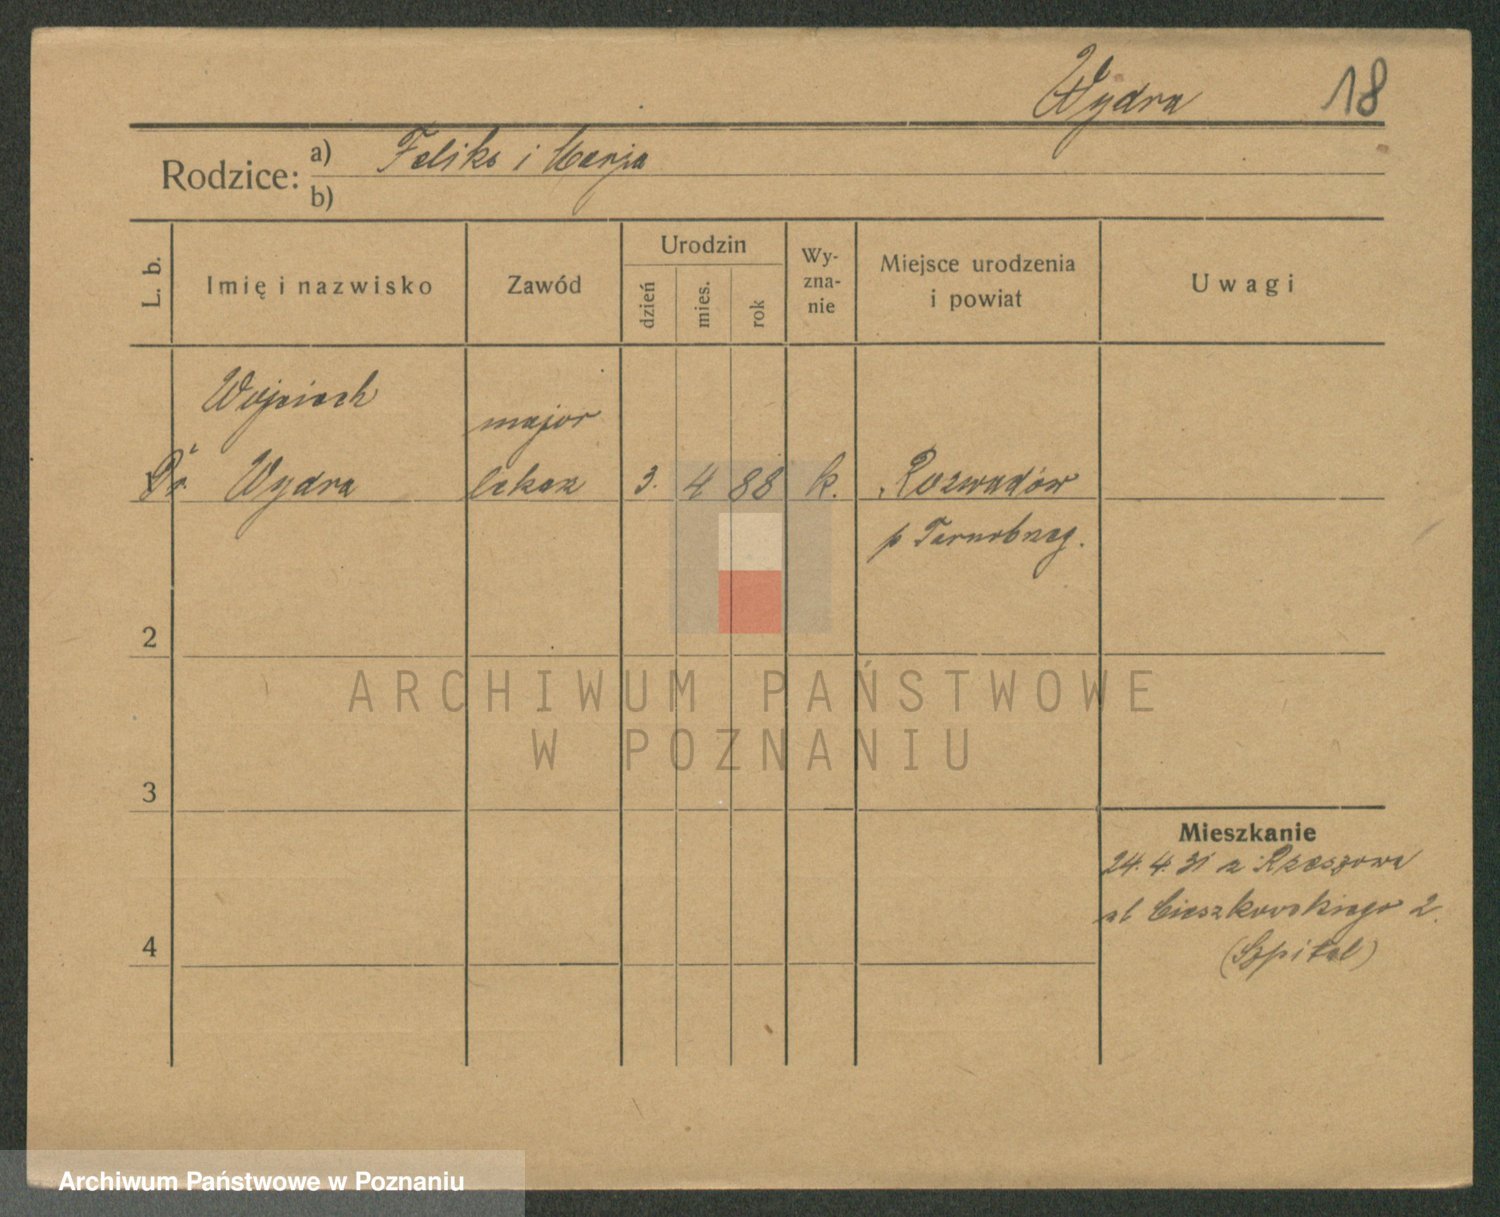 Wydra 18
Rodzice: a) Feliks i Marja
b)
L. b.
Imię i nazwisko
Zawód
Urodzin
dzień
mies.
rok
Wy-
zna-
nie
Miejsce urodzenia
i powiat
Uwagi
Wojciech
major
Dr. Wydra lekarz 3. 4 88 k. Rozwadów
p Tarnobrzeg.
2
ARCHIWUM PAŃSTWOWE
W POZNANIU
3
Mieszkanie
24. 4. 31 z Rzeszowa
ul Cieszkowskiego 2.
4
(Szpital)
Archiwum Państwowe w Poznaniu